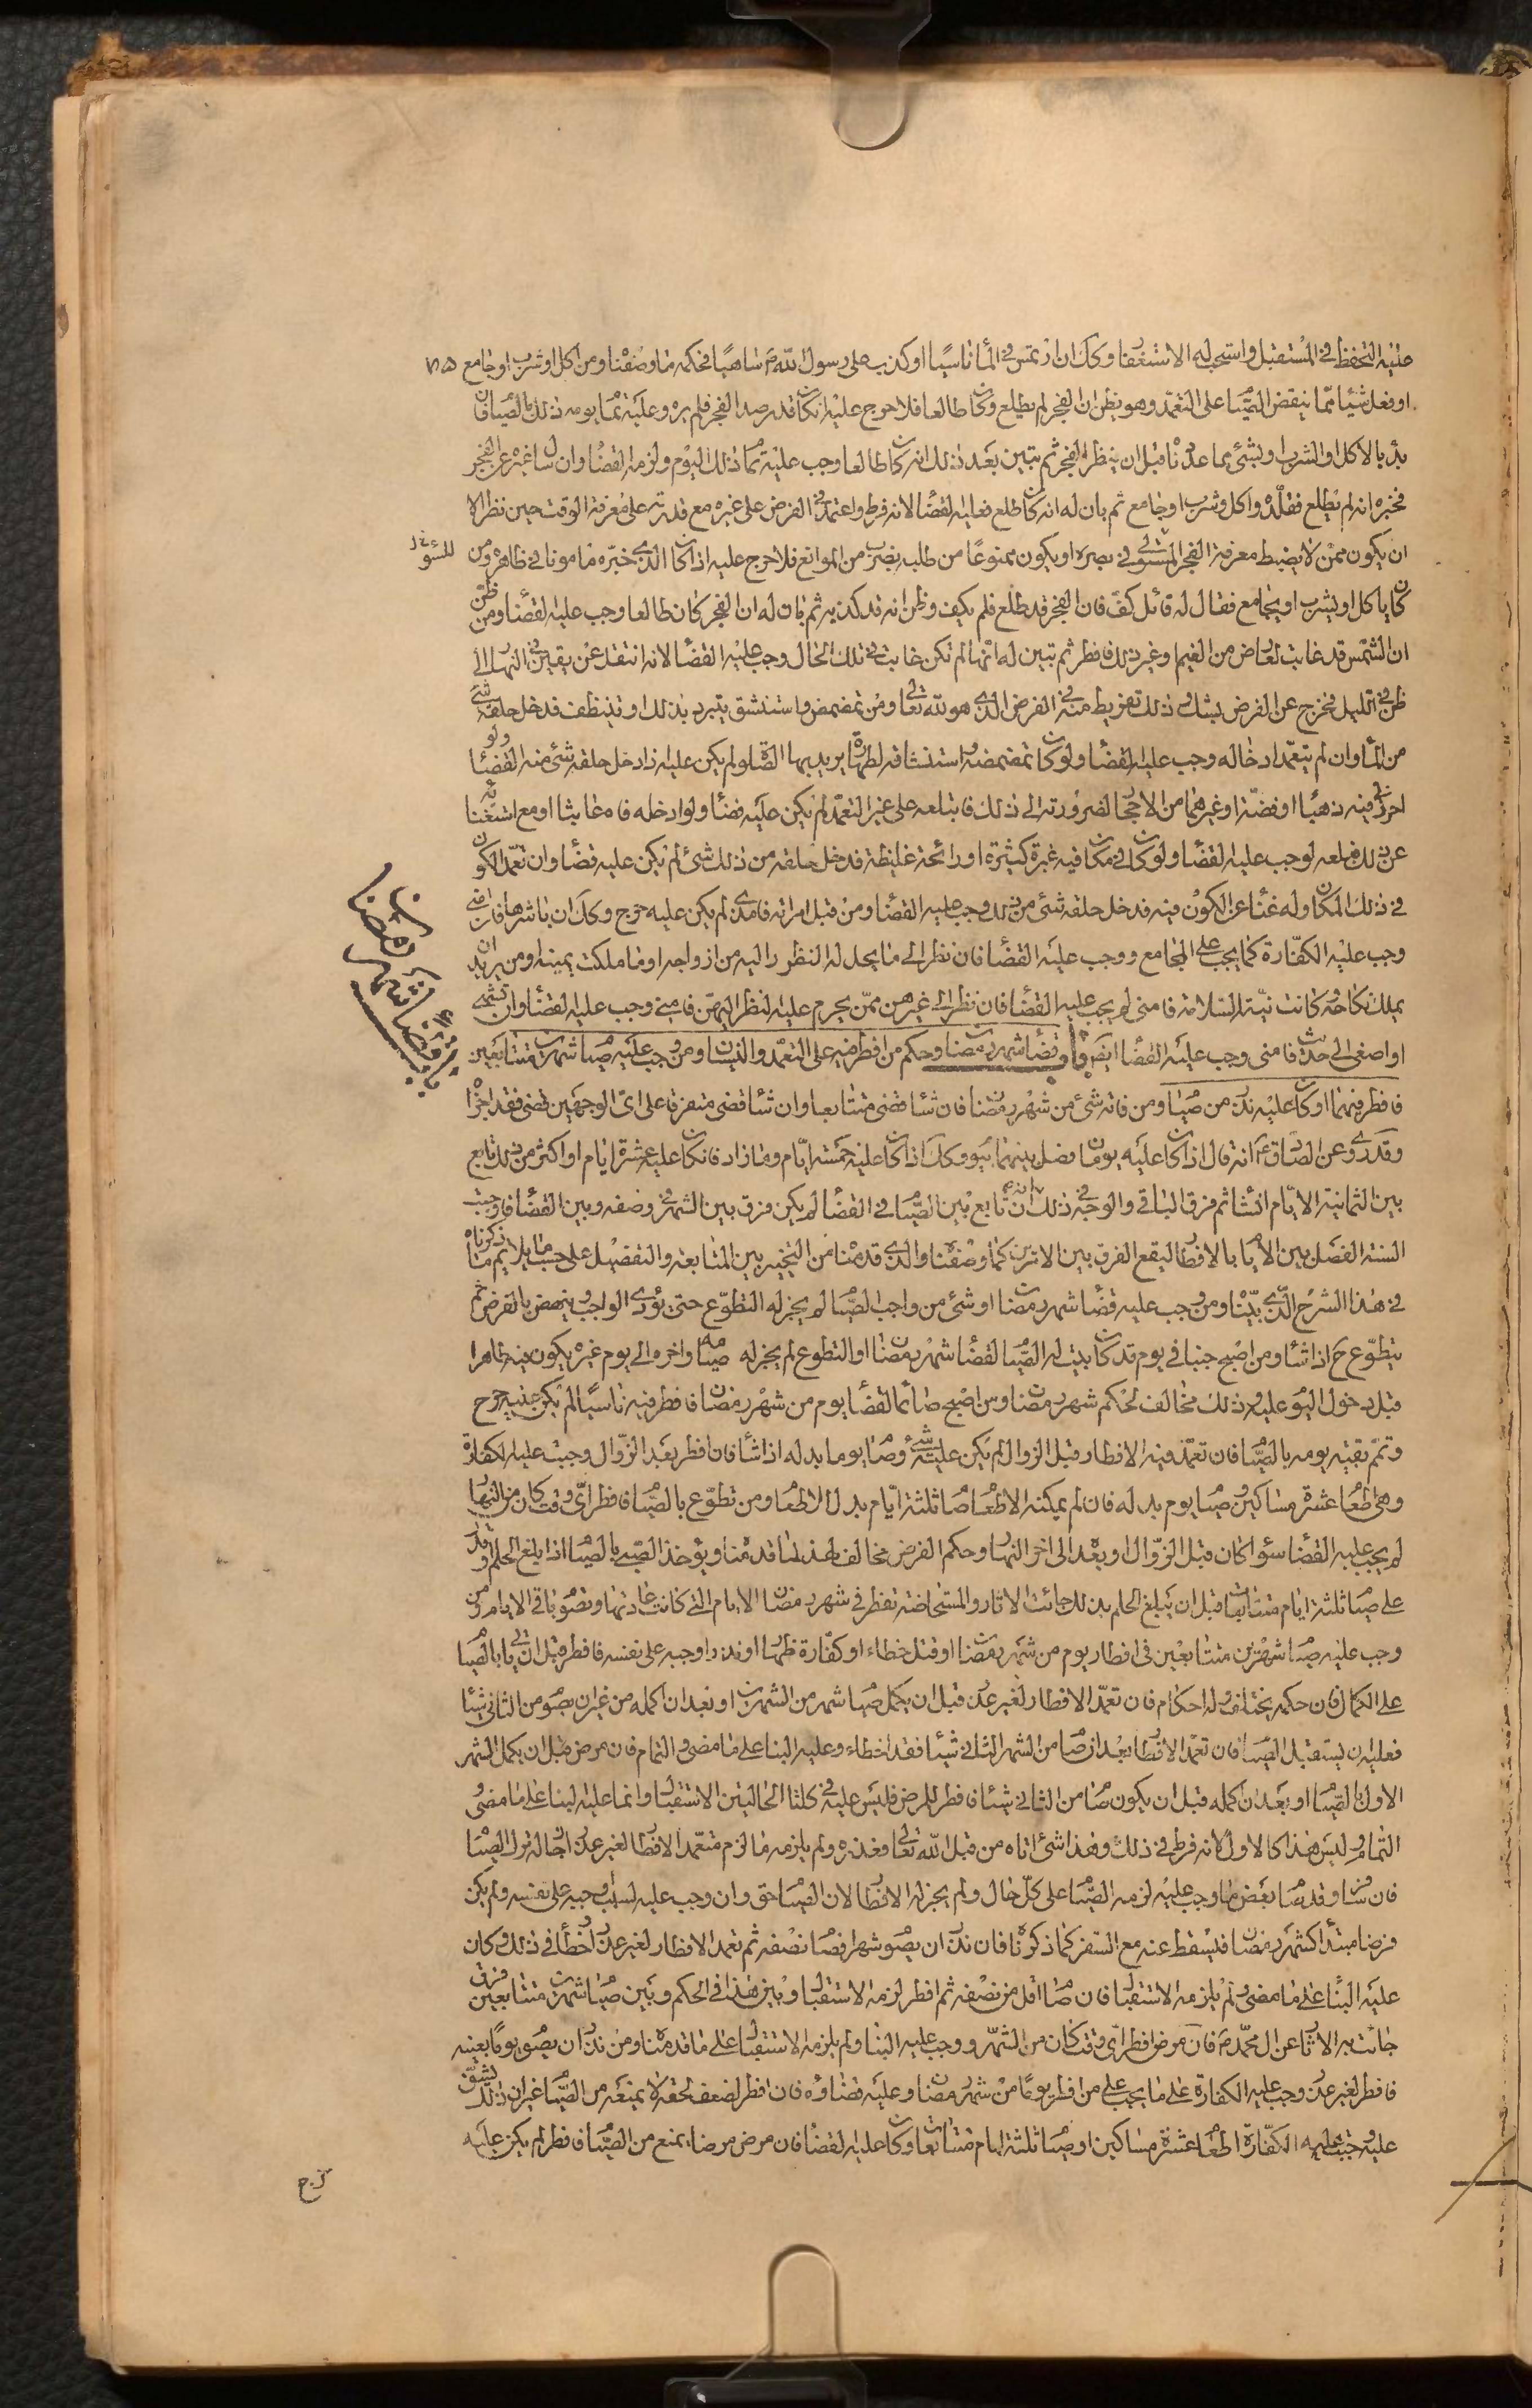 عليه التحفظ في المستقبل واستحب له الاستغفار وكك ان ارتمس في الماء ناسيا او كذب على رسول الله ص ساهيا فحكمه ما وصفنا ومن اكل او شرب او جامع
او فعل شيئا مما ينقض الصيام على التعمد وهو يظن ان الفجر لم يطلع وكان طالعا فلا حرج عليه ان كان قد رصد الفجر فلم يره وعليه تمام يومه ذلك بالصيام فان
بدأ بالاكل او الشرب او بشئ مما عددناه قبل ان ينظر الفجر ثم تبين بعد ذلك انه كان طالعا وجب عليه تمام ذلك اليوم ولزمه القضاء وان سأل غيره عن الفجر
فخبره انه لم يطلع فقلده واكل وشرب او جامع ثم بان له انه كان طلع فعليه القضاء لانه فرط واعتمد في الفرض على غيره مع قدرته على معرفة الوقت حين نظر الا
ان يكون ممن لا يضبط معرفة الفجر في بصره او يكون ممنوعا من طلبه بضرب من الموانع فلا حرج عليه اذا كان الذي خبره مامونا في ظاهره ومن
كان ياكل او يشرب او يجامع فقال له قائل كف فان الفجر قد طلع فلم يكف وظن انه قد كذبه ثم بان له ان الفجر كان طالعا وجب عليه القضاء ومن ظن
ان الشمس قد غابت لعارض من الغيم او غير ذلك فافطر ثم تبين له انها لم تكن غابت في تلك الحال وجب عليه القضاء لانه انتقل عن يقين في النهار الى
ظن في الليل فخرج عن الفرض بشك وذلك تفريط منه في الفرض الذي هو لله تعالى ومن تمضمض واستنشق يتبرد بذلك او يتنظف فدخل حلقه شئ
من الماء وان لم يتعمد ادخاله وجب عليه القضاء ولو كان تمضمضه واستنشاقه لطهارة يريد بها الصلوة لم يكن عليه اذا دخل حلقه شئ منه القضاء ولو
ترك فيه ذهبا او فضة او غيرهما من الاحجار لضرورته الى ذلك فابتلعه على غير التعمد لم يكن عليه قضاء ولو ادخله فاه عابثا او مع استغنائه
عن ذلك فبلعه لوجب عليه القضاء ولو كان في مكان فيه غبرة كثيرة او رائحة غليظة فدخل حلقه من ذلك شئ لم يكن عليه قضاء وان تعمد الكون
في ذلك المكان وله غناء عن الكون فيه فدخل حلقه شئ من ذلك وجب عليه القضاء ومن قبل امراته فامذى لم يكن عليه حرج وكك ان باشرها فان امنى
وجب عليه الكفارة كما يجب على المجامع ووجب عليه القضاء فان نظر الى ما يحل له النظر اليه من ازواجه او ما ملكت يمينه او من يريد ان
يملك نكاحه وكانت نيته السلامة فامنى لم يجب عليه القضاء فان نظر الى غيرهن ممن يحرم عليه النظر اليهن فامنى وجب عليه القضاء وان تشهى
او اصغى الى حديث فامنى وجب عليه القضاء ايضا باب قضاء شهر رمضان وحكم من افطر فيه على التعمد والنسيان ومن وجب عليه صيام شهرين متتابعين
فافطر فيهما او كان عليه نذر من صيام ومن فاته شئ من شهر رمضان فان شاء قضى متتابعا وان شاء قضى متفرقا على اى الوجهين قضى فقد اجزاه
وقد روى عن الصادق ع انه قال اذا كان عليه يومان فصل بينهما بيوم وكك اذا كان عليه خمسة ايام وما زاد فان كان عليه عشرة ايام او اكثر من ذلك تابع
بين الثمانية الايام ان شاء ثم فرق الباقي والوجه في ذلك انه ان تابع بين الصيام في القضاء لم يكن فرق بين الشهر في وصفه وبين القضاء فاوجبت
السنة الفصل بين الايام بالافطار ليقع الفرق بين الامرين كما وصفناه والذي قدمناه من التخيير بين المتابعة والتفصيل على حسب ما يلائم ما ذكرناه
في هذا الشرح الذي بيناه ومن وجب عليه قضاء شهر رمضان او شئ من واجب الصيام لم يجز له التطوع حتى يؤدى الواجب وينهض بالفرض ثم
يتطوع ح اذا شاء ومن اصبح جنبا في يوم قد كان بيت له الصيام لقضاء شهر رمضان او التطوع لم يجز له صيامه واخره الى يوم غيره يكون فيه طاهرا
قبل دخول اليوم عليه وذلك مخالف لحكم شهر رمضان ومن اصبح صائما لقضاء يوم من شهر رمضان فافطر فيه ناسيا لم يكن عليه حرج
وتمم بقية يومه بالصيام فان تعمد فيه الافطار قبل الزوال لم يكن عليه شئ وصام يوما بدله اذا شاء فان افطر بعد الزوال وجبت عليه الكفارة
وهي اطعام عشرة مساكين وصيام يوم بدله فان لم يمكنه الاطعام صام ثلثة ايام بدل الاطعام ومن تطوع بالصيام فافطر اى وقت كان من النهار
لم يجب عليه القضاء سواء كان قبل الزوال او بعده الى اخر النهار وحكم الفرض مخالف لهذا لما قدمناه ويؤخذ الصبي بالصيام اذا بلغ الحلم او قدر
على صيام ثلثة ايام متتابعات قبل ان يبلغ الحلم بذلك جائت الاثار والمستحاضة تفطر في شهر رمضان الايام التي كانت عادتها وتصوم باقي الايام ومن
وجب عليه صيام شهرين متتابعين في افطار يوم من شهر رمضان او قتل خطاء او كفارة ظهار او نذر اوجبه على نفسه فافطر قبل ان ياتي بالصيام
على الكمال فان حكمه يختلف وله احكام فان تعمد الافطار لغير عذر قبل ان يكمل صيام شهر من الشهرين او بعد ان اكمله من غير ان يصوم من الثاني شيئا
فعليه ان يستقبل الصيام فان تعمد الافطار بعد ان صام من الشهر الثاني شيئا فقد اخطاء وعليه البناء على ما مضى والتمام فان مرض قبل ان يكمل الشهر
الاول بالصيام او بعد ان اكمله قبل ان يكون صام من الثاني شيئا فافطر للمرض فليس عليه في كلتا الحالتين الاستقبال وانما عليه البناء على ما مضى و
التمام وليس هذا كالاول لانه فرط في ذلك وهذا شئ اتاه من قبل الله تعالى فعذره ولم يلزمه ما لزم متعمد الافطار لغير عذر احاله ترك الصيام
فان سافر وقد صام بعض ما وجب عليه لزمه الصيام على كل حال ولم يجز له الافطار لان الصيام حق وان وجب عليه لسبب اوجبه على نفسه ولم يكن
فرضا مبتدأ كشهر رمضان فيسقط عنه مع السفر كما ذكرناه فان نذر ان يصوم شهرا فصام نصفه ثم تعمد الافطار لغير عذر اخطأ في ذلك وكان
عليه البناء على ما مضى ولم يلزمه الاستقبال فان صام اقل من نصفه ثم افطر لزمه الاستقبال وبين هذا في الحكم وبين صيام شهرين متتابعين فرق
جائت به الاثار عن ال محمد ص فان مرض افطر اى وقت كان من الشهر ووجب عليه البناء ولم يلزمه الاستقبال على ما قدمناه ومن نذر ان يصوم يوما بعينه
فافطر لغير عذر وجب عليه الكفارة على ما يجب على من افطر يوما من شهر رمضان وعليه قضاؤه فان افطر لضعف لحقه لا يمنعه من الصيام غير ان ذلك يشق
عليه وجبت عليه الكفارة اطعام عشرة مساكين او صيام ثلثة ايام متتابعات وكان عليه القضاء فان مرض مرضا يمنع من الصيام فافطر لم يكن عليه